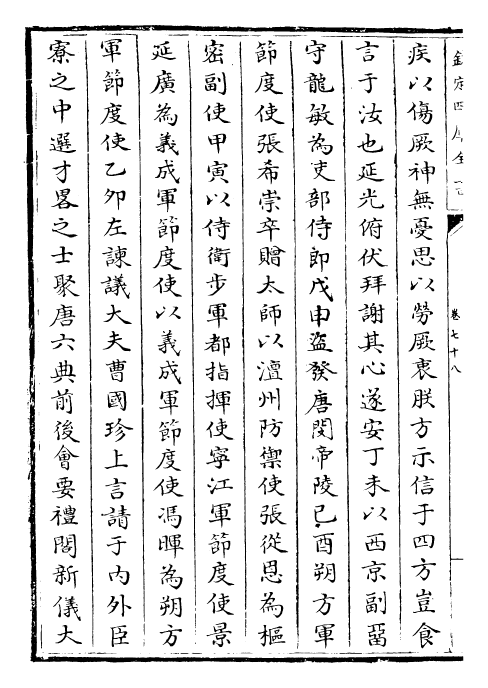 欽定四庫全書
卷七十八
疾以傷厥神無憂思以勞厥衷朕方示信于四方豈食
言于汝也延光俯伏拜謝其心遂安丁未以西京副留
守龍敏為吏部侍郎戊申盜發唐閔帝陵己酉朔方軍
節度使張希崇卒贈太師以澶州防禦使張從恩為樞
密副使甲寅以侍衛步軍都指揮使寧江軍節度使景
延廣為義成軍節度使以義成軍節度使馮暉為朔方
軍節度使乙卯左諫議大夫曹國珍上言請于內外臣
寮之中選才畧之士聚唐六典前後會要禮閣新儀大